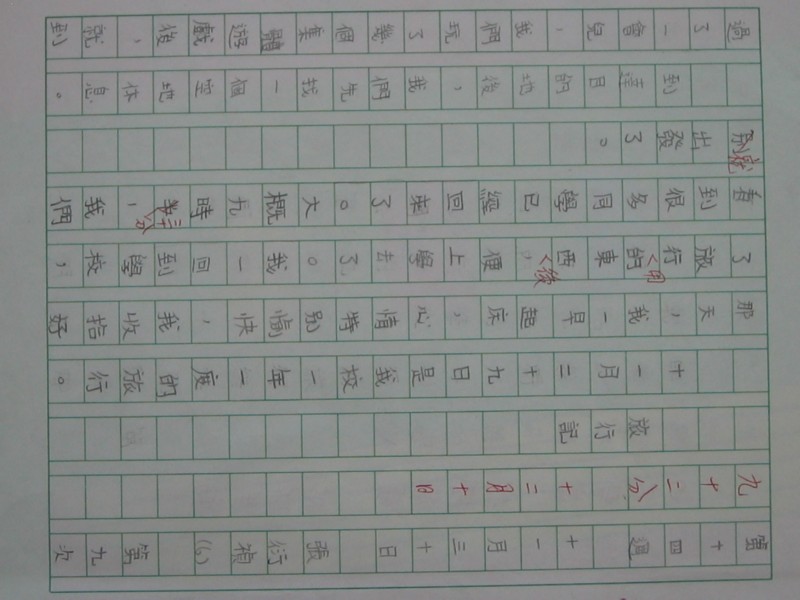 第十四週 十一月三十日 張衍禎(6) 第九次
九十二分 十二月十日
旅行記
十一月二十九日是我校一年一度的旅行。
那天,我一早起床,心情特別愉快,我收拾好
了旅行用的東西後,便上學去了。我一回到學校,
看到很多同學已經回來了。大概九時三十分,我們
就出發了。
到達目的地後,我們先找一個空地休息。
過了一會兒,我們玩了幾個集體遊戲後,就到